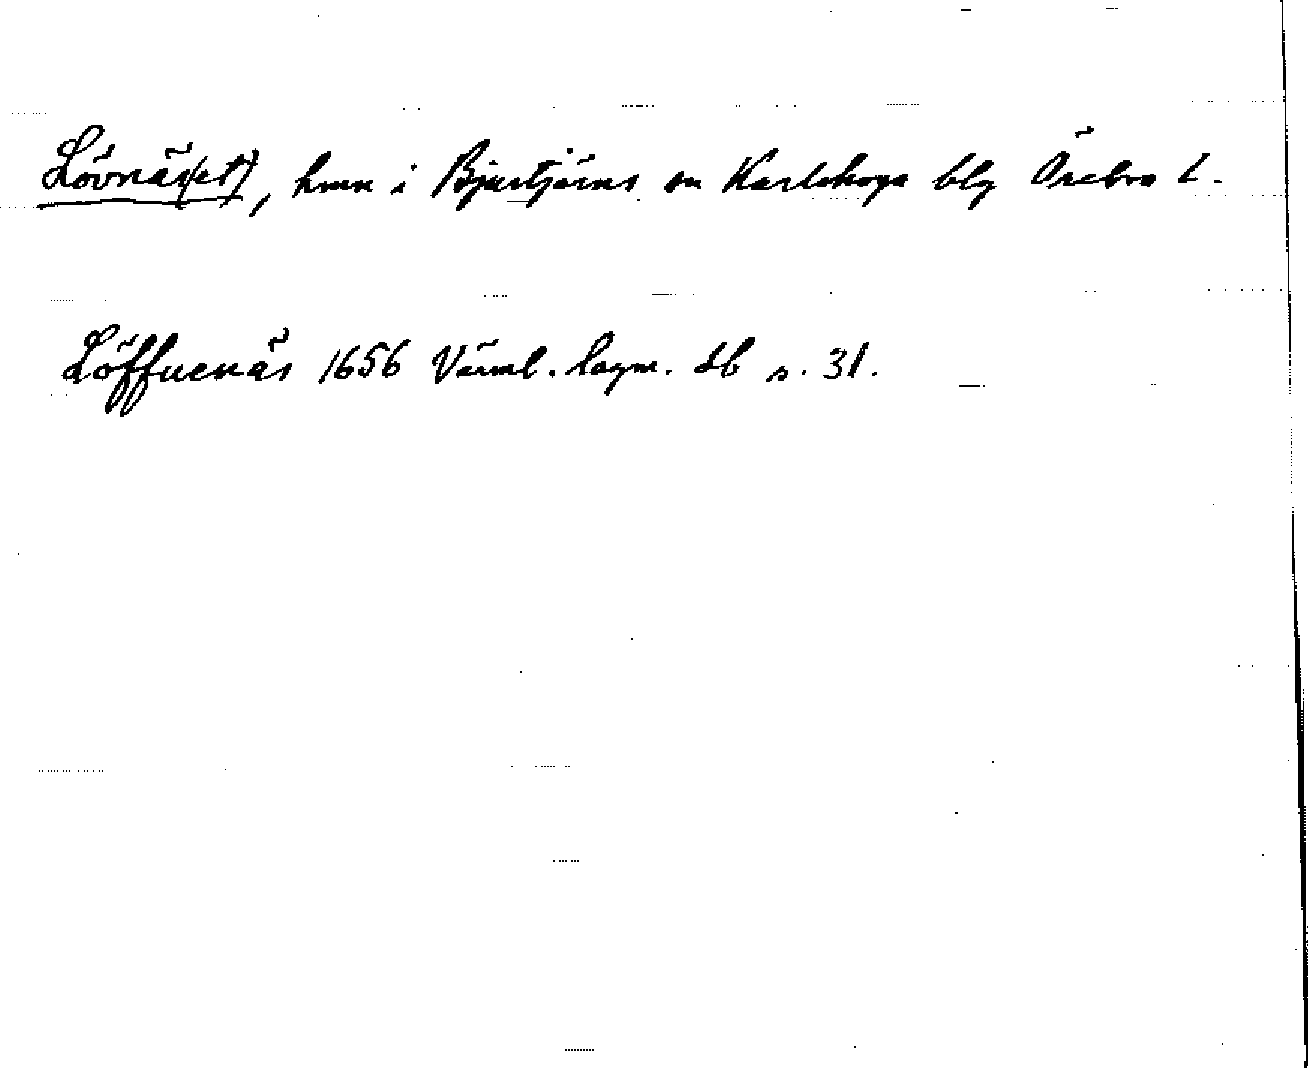 Lövnäs(et), hmn i Bjurtjärns sn Karlskoga blg Örebro l.
Löffuenäs 1656 Värml. lagm. db s. 31.